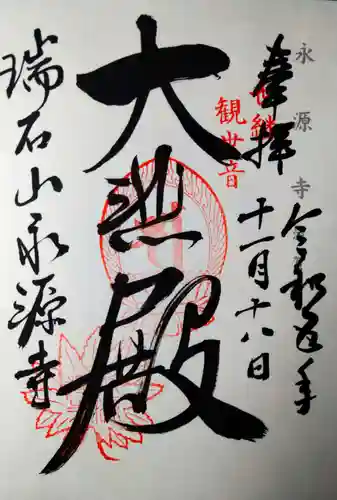 永源寺
令和五年
奉拝
世継
観世音
十一月十八日
大悲殿
瑞石山永源寺